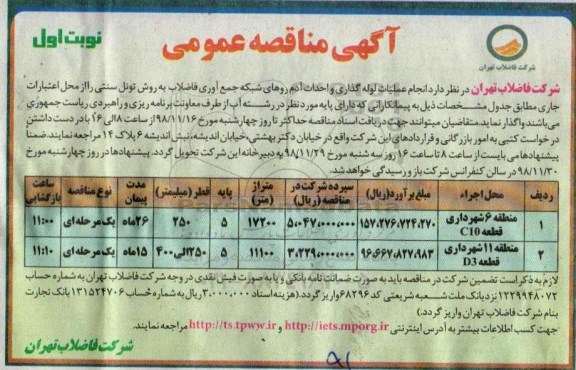 شرکت فاضلاب تهران
آگهی مناقصه عمومی
نوبت اول
شرکت فاضلاب تهران در نظر دارد انجام عملیات لوله گذاری و احداث آدم روهای شبکه جمع آوری فاضلاب به روش تونل سنتی را از محل اعتبارات
جاری مطابق جدول مشخصات ذیل به پیمانکارانی که دارای پایه مورد نظر در رشته آب از طرف معاونت برنامه ریزی و راهبردی ریاست جمهوری
می باشند واگذار نماید. متقاضیان میتوانند جهت دریافت اسناد مناقصه حداکثر تا روز چهارشنبه مورخ ۹۸/۱۱/۱۶ از ساعت ۸ الی ۱۶ با در دست داشتن
درخواست کتبی به امور بازرگانی و قراردادهای این شرکت واقع در خیابان دکتر بهشتی، خیابان اندیشه، نبش اندیشه ۶ پلاک ۱۴ مراجعه نمایند. ضمناً
پیشنهادها می بایست از ساعت ۸ تا ساعت ۱۶ روز سه شنبه مورخ ۹۸/۱۱/۲۹ به دبیرخانه این شرکت تحویل گردد. پیشنهادها در روز چهارشنبه مورخ
۹۸/۱۱/۳۰ در سالن کنفرانس شرکت باز و رسیدگی خواهد شد.
ردیف محل اجراء مبلغ برآورد (ریال) سپرده شرکت در مناقصه (ریال) متراژ (متر) پایه قطر (میلیمتر) مدت پیمان نوع مناقصه ساعت بازگشایی
۱ منطقه ۶ شهرداری قطعه C10 ۱۵۷،۲۷۶،۷۲۴،۲۷۰ ۵،۰۴۷،۰۰۰،۰۰۰ ۱۷۲۰۰ ۵ ۲۵۰ ۲۶ ماه یک مرحله ای ۱۱:۰۰
۲ منطقه ۱۱ شهرداری قطعه D3 ۹۶،۶۶۷،۸۲۷،۹۸۳ ۳،۲۲۹،۰۰۰،۰۰۰ ۱۱۱۰۰ ۵ ۲۵۰ الی ۴۰۰ ۱۵ ماه یک مرحله ای ۱۱:۱۰
لازم به ذکر است تضمین شرکت در مناقصه باید به صورت ضمانت نامه بانکی و یا به صورت فیش نقدی در وجه شرکت فاضلاب تهران به شماره حساب
۱۲۲۹۹۴۸۰۷۲ نزد بانک ملت شعبه شریعتی کد ۶۸۲۹۶ واریز گردد. (هزینه اسناد ۳،۰۰۰،۰۰۰ ریال به شماره حساب ۱۳۱۵۲۴۷۰۶ بانک تجارت
بنام شرکت فاضلاب تهران واریز گردد.)
جهت کسب اطلاعات بیشتر به آدرس اینترنتی http://iets.mporg.ir و http://ts.tpww.ir مراجعه نمایند.
شرکت فاضلاب تهران